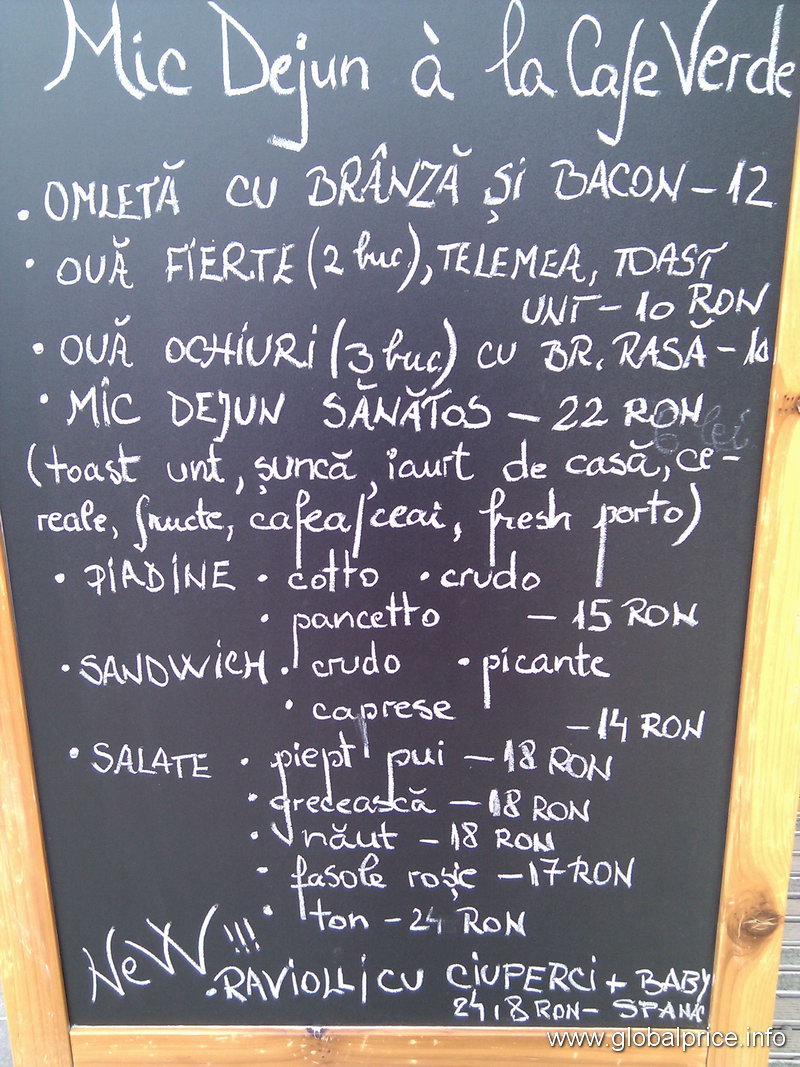 Mic Dejun à la Cafe Verde
• OMLETĂ CU BRÂNZĂ ȘI BACON - 12
• OUĂ FIERTE (2 buc.), TELEMEA, TOAST
UNT - 10 RON
• OUĂ OCHIURI (3 buc.) CU BR. RASĂ - 10
• MIC DEJUN SĂNĂTOS - 22 RON
(toast unt, șuncă, iaurt de casă, ce-
reale, fructe, cafea/ceai, fresh porto)
• PIADINE • cotto • crudo
• pancetto - 15 RON
• SANDWICH • crudo • picante
• caprese
- 14 RON
• SALATE • piept pui - 18 RON
• grecească - 18 RON
• năut - 18 RON
• fasole roșie - 17 RON
• ton - 24 RON
NeW!!!
• RAVIOLLI CU CIUPERCI + BABY
24,8 RON - SPANAC
www.globalprice.info